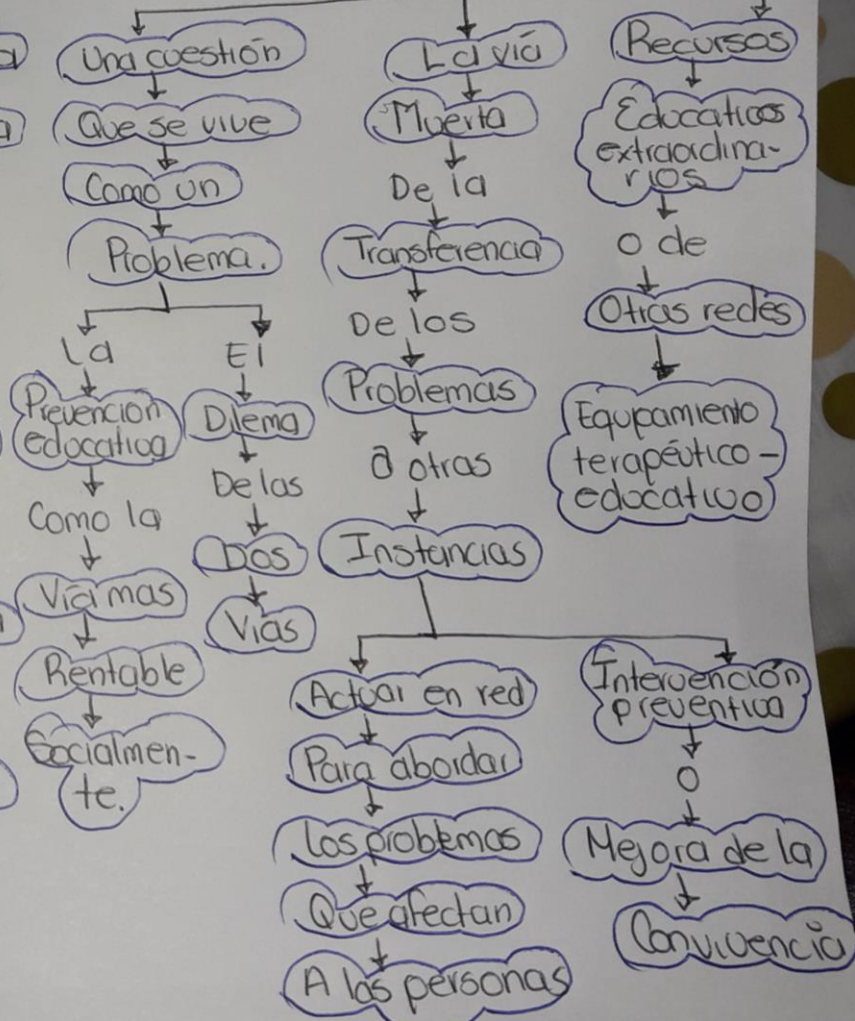 Una cuestión
Que se vive
Como un
Problema.
La
Prevención
educativa
Como la
Vía mas
Rentable
Socialmen-
te.
El
Dilema
De las
Dos
Vías
La vía
Muerta
De la
Transferencia
De los
Problemas
a otras
Instancias
Actuar en red
Para abordar
Los problemas
Que afectan
A las personas
Intervención
preventiva
O
Mejora de la
Convivencia
Recursos
Educativos
extraordina-
rios
O de
Otras redes
Equipamiento
terapéutico-
educativo